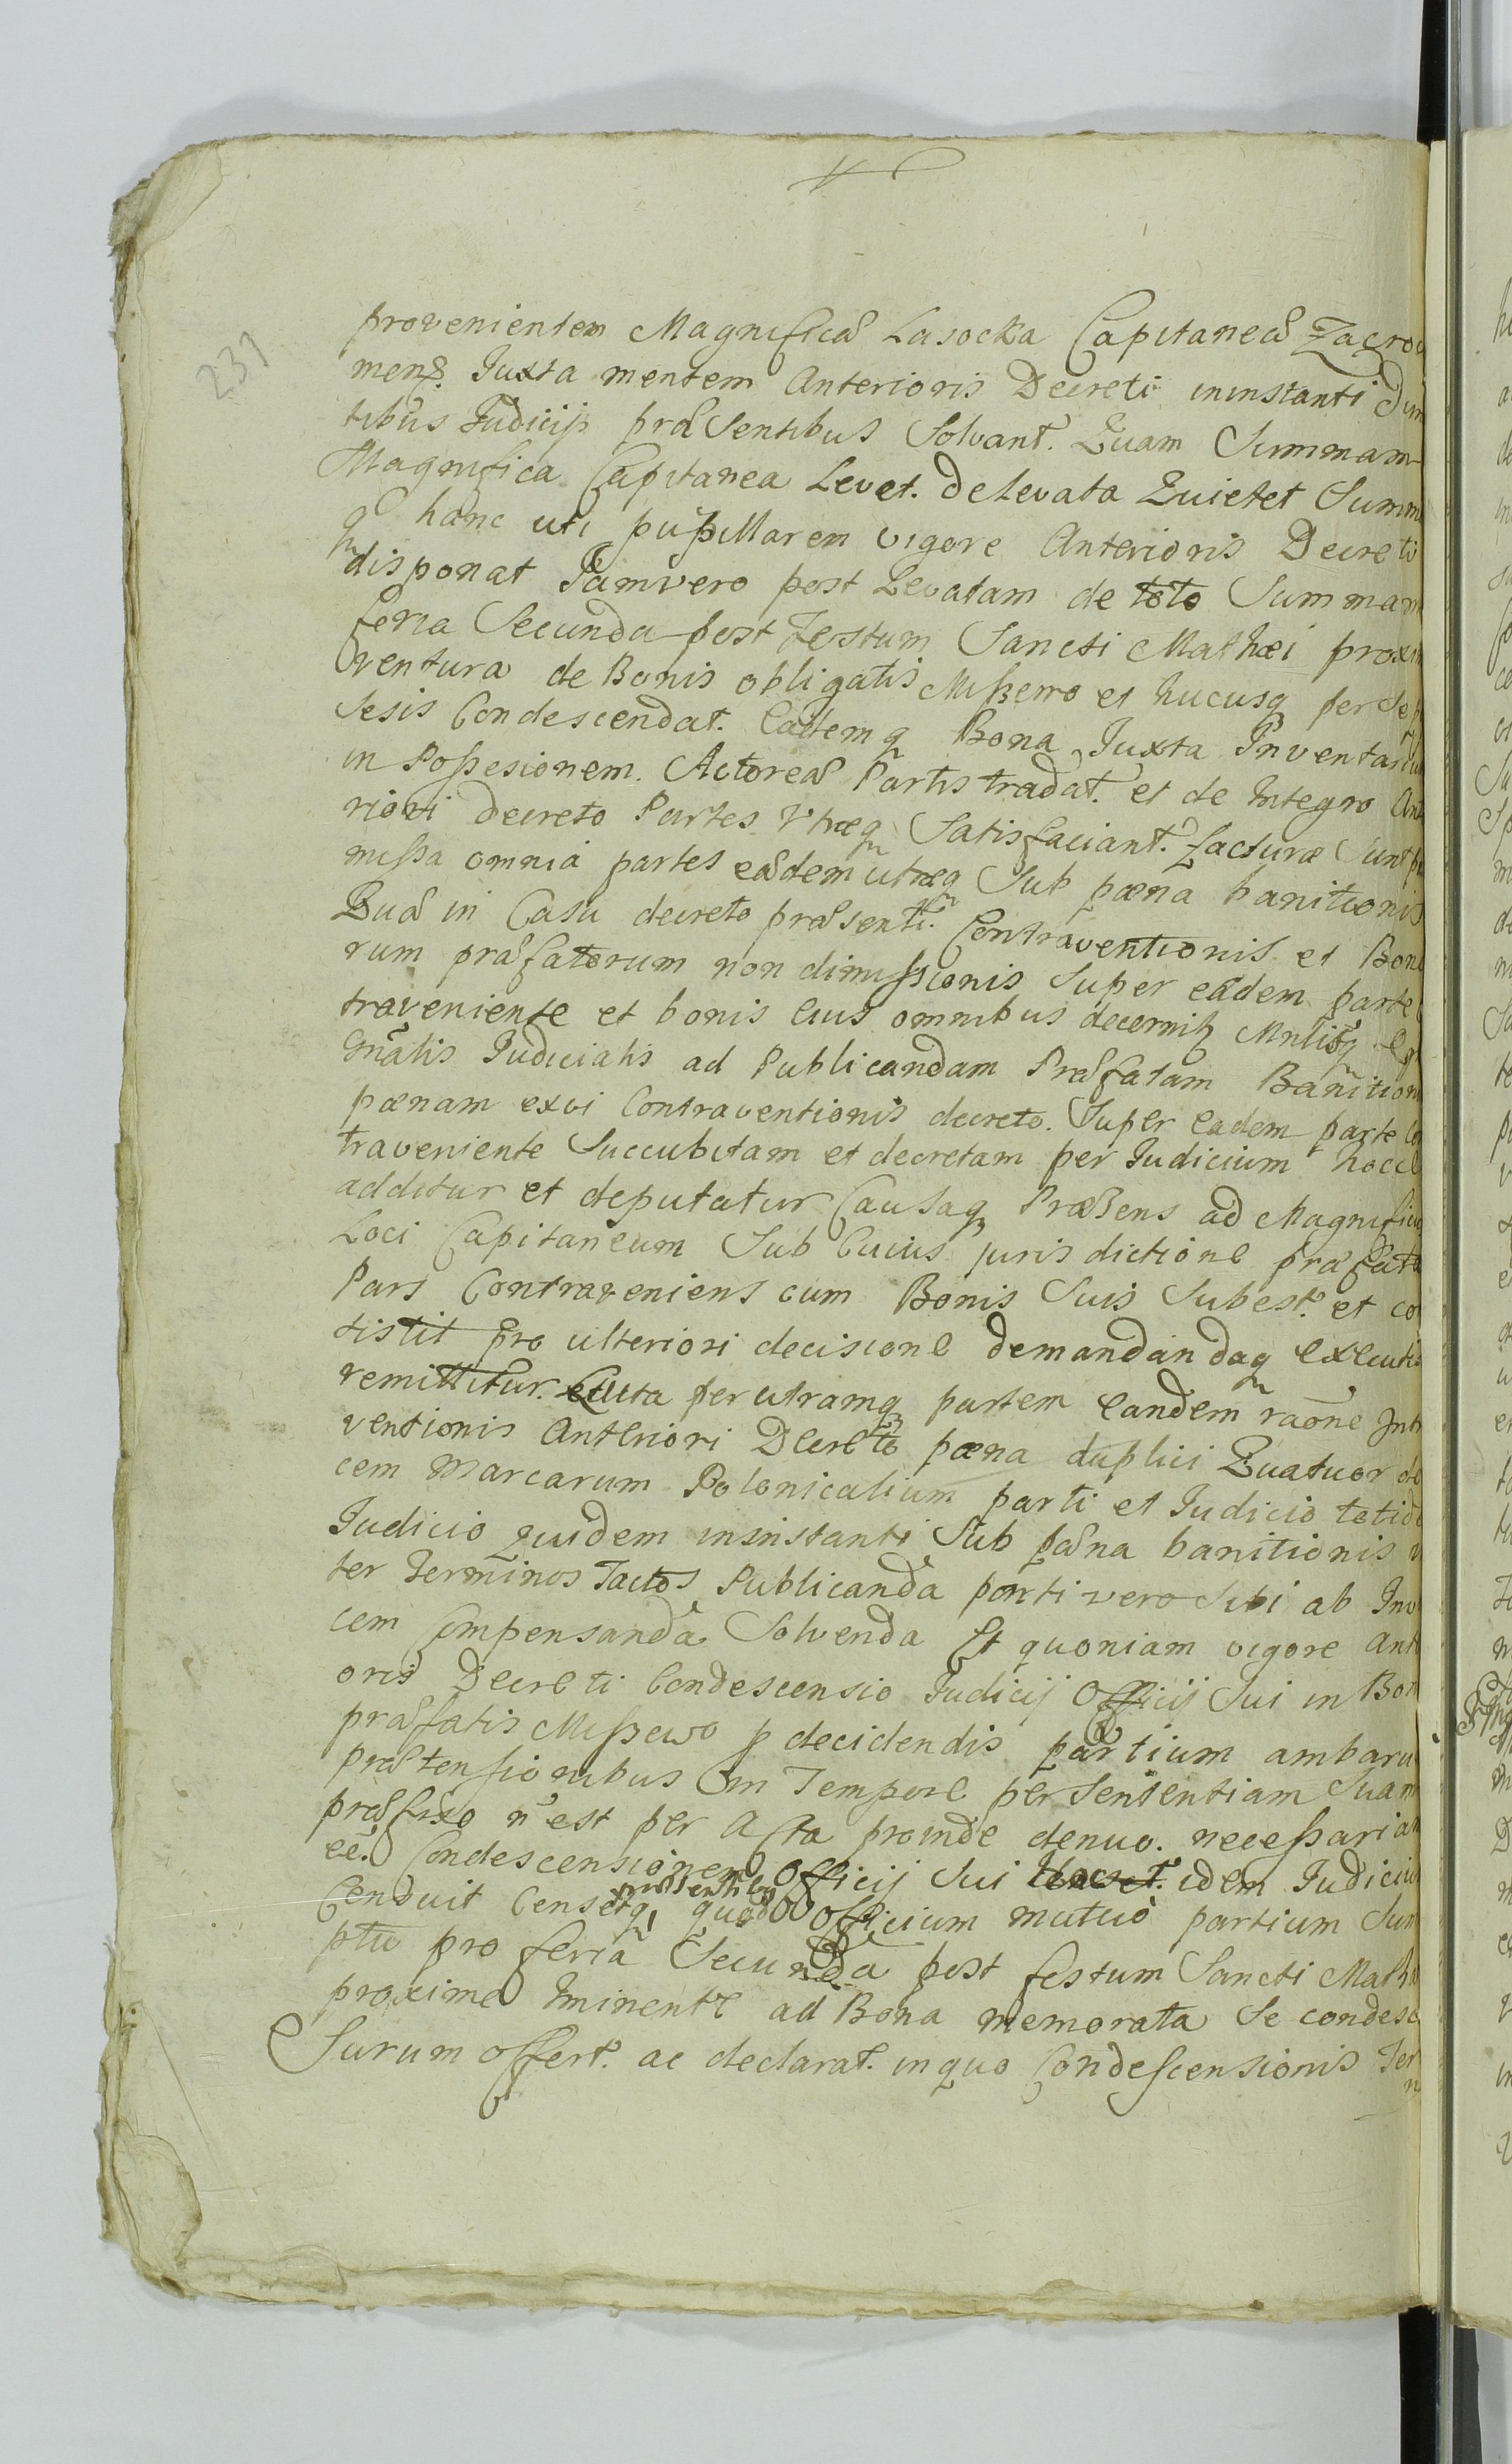 231
provenientem Magnificæ Lasocka Capitaneæ Zacro
mens. Juxta mentem Anterioris Decreti ininstanti dum
tibus Judicijs præsentibus Solvant. Quam Summam
Magnifica Capitanea Levet. de levata Quietet Summ
q hanc uti pupillarem vigore Anterioris Decreti
disponat Jamvero post Levatam de toto Summam
feria Secunda post Festum Sancti Mathæi prox
ventura de Bonis obligatis Missewo et hucusq per se
sesis Condescendat. Eademq Bona Juxta Inventar
in Possesionem Actoreæ Partis tradat. et de Integro Ant
riori decreto Partes Utræq Satisfaciant. facturæ Sunt
missa omnia partes eædem utræq Sub pæna banitionis
Quæ in Casu decreto præsenti Contraventionis et Bono
rum præfatorum non dimissionis Super eadem parte
traveniente et bonis eius omnibus decernit
Gnalis Judicialis ad Publicandam Præfatam Banition
pænam exvi Contraventionis decreto. Super eadem parte Co
traveniente Succubitam et decretam per Judicium hocce
additur et deputatur Causaq Præsens ad Magnificu
Loci Capitaneum Sub Cuius jurisdictione præfata
Pars Contraveniens cum Bonis Suis Subest. et co
sistit pro ulteriori decisione demandandaq executi
remittitur. Luita per utramq partem eandem raone Int
ventionis Anteriori Decreto pæna duplici Quatuor de
cem Marcarum Polonicalium parti et Judicio totid
Judicio quidem ininstanti Sub pæna banitionis
ter Terminos Tactos Publicanda parti vero Sibi ab Inv
cem Compensanda Solvenda Et quoniam vigore Ant
oris Decreti Condescensio Judicij Officij Sui in Bon
præfatis Missewo p decidendis partium ambaru
prætensionibus in Tempore per Sententiam Suam
præfixo n est per Acta proinde denuo. necessariam
eē. Condescensionem Officij Sui idem Judiciu
Cenduit Censetq præsentibus quod Officium mutuò partium Sum
ptu pro feria Secunda post festum Sancti Math
proxime Iminente ad Bona memorata Se condesc
Surum offert. ac declarat. in quo Condescensionis Ter